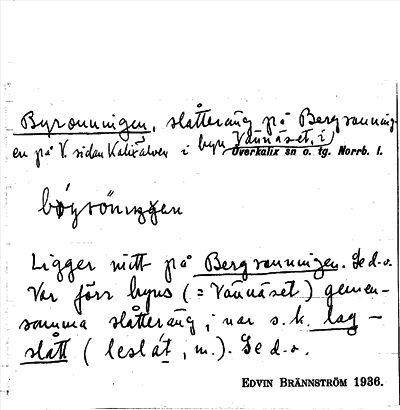 Byrönningen, slåtteräng på Bergrönning-
en på V. sidan Kalixälven i byn Vännäset, i
Överkalix sn o. tg. Norrb. l.
Ligger mitt på Bergrönningen. Se d.o.
Var förr byns (= Vännäset) gemen-
samma slåtteräng, var s.k. lag-
slått ( leslåt, m.). Se d.o.
EDVIN BRÄNNSTRÖM 1936.